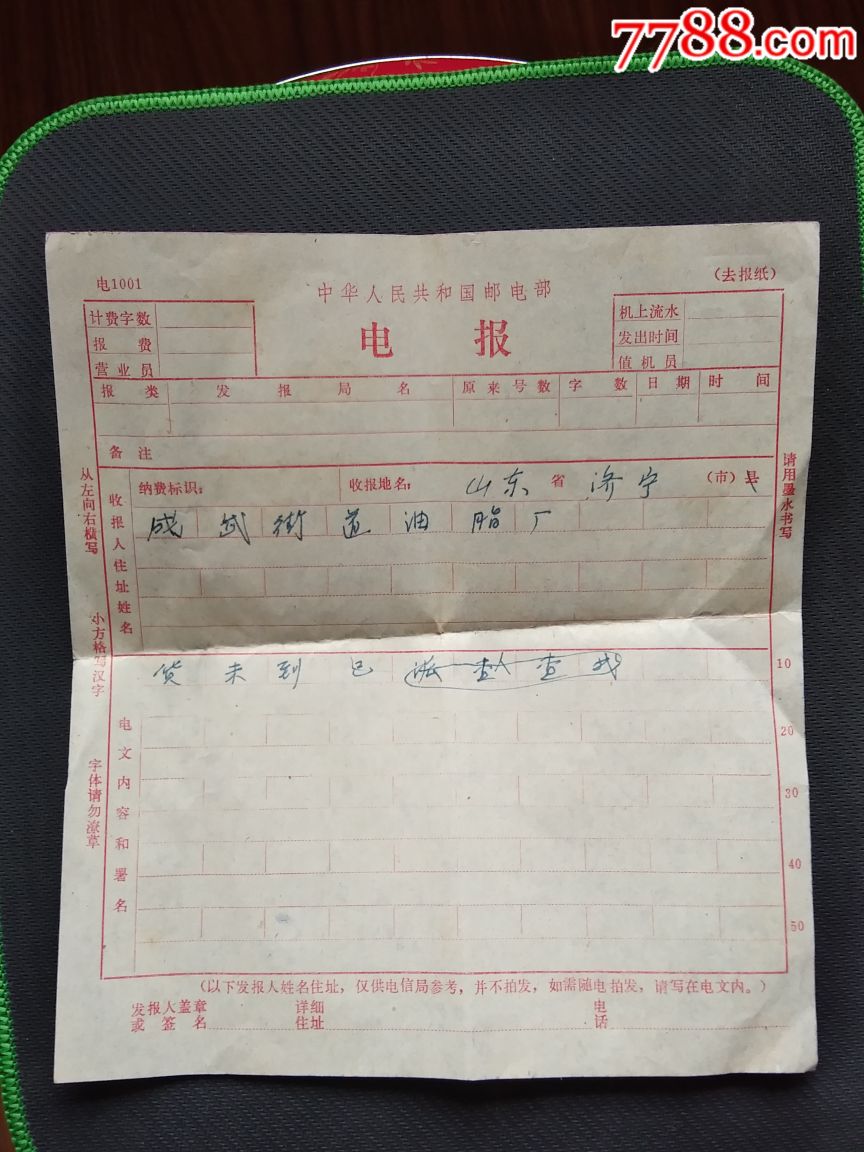 7788.com
电1001
(去报纸)
中华人民共和国邮电部
电 报
计费字数
报 费
营业员
机上流水
发出时间
值机员
报 类 发 报 局 名 原来号数 字 数 日 期 时 间
备 注
纳费标识: 收报地名: 山东 省 济宁 (市)县
收报人住址姓名
成武街道油脂厂
货未到已派人查找
电文内容和署名
10
20
30
40
50
从左向右横写 小方格写汉字 字体请勿潦草
请用墨水书写
(以下发报人姓名住址，仅供电信局参考，并不拍发，如需随电拍发，请写在电文内。)
发报人盖章 详细 电
或 签 名 住址 话